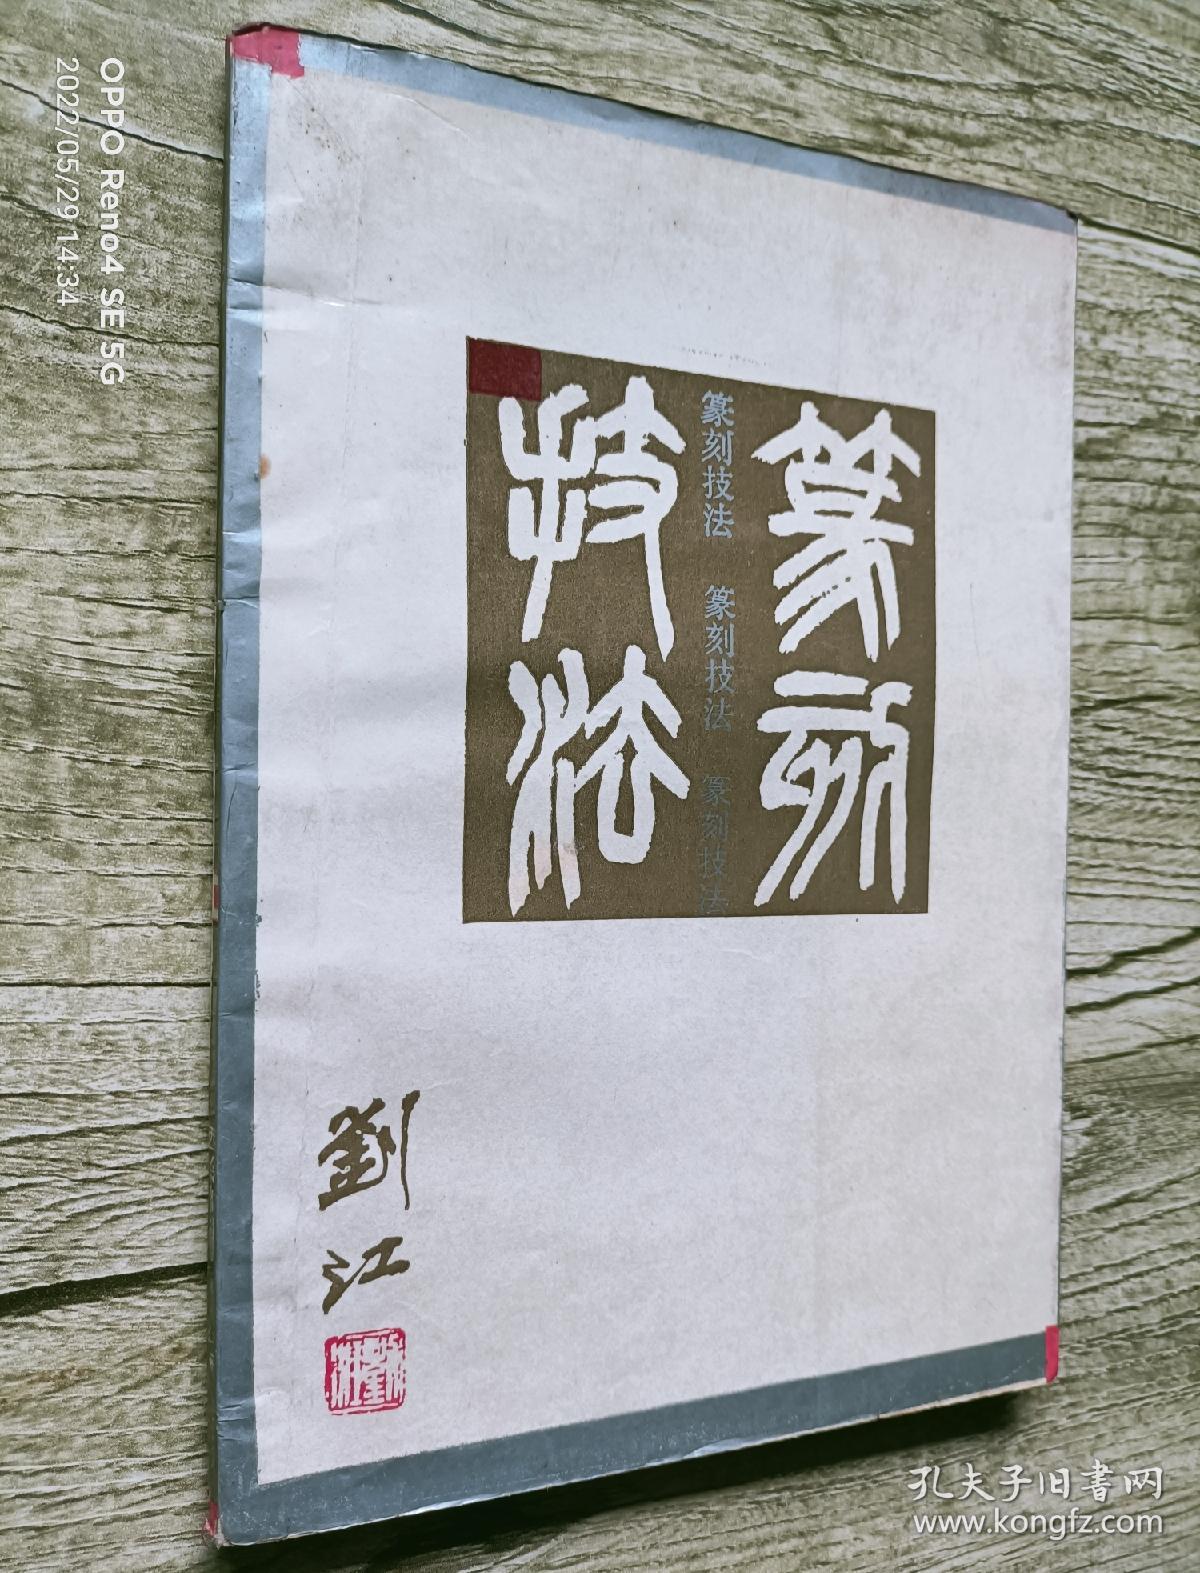 OPPO Reno4 SE 5G
2022/05/29 14:34
篆刻
技法
篆刻技法 篆刻技法 篆刻技法
劉江
孔夫子旧書网
www.kongfz.com